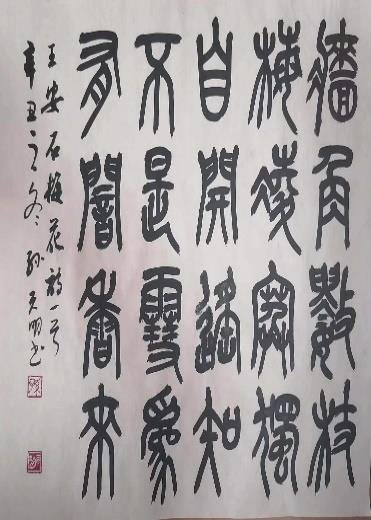 牆角數枝
梅凌寒獨
自開遥知
不是雪為
有闇香來
王安石梅花詩一首
辛丑之冬孙天明书